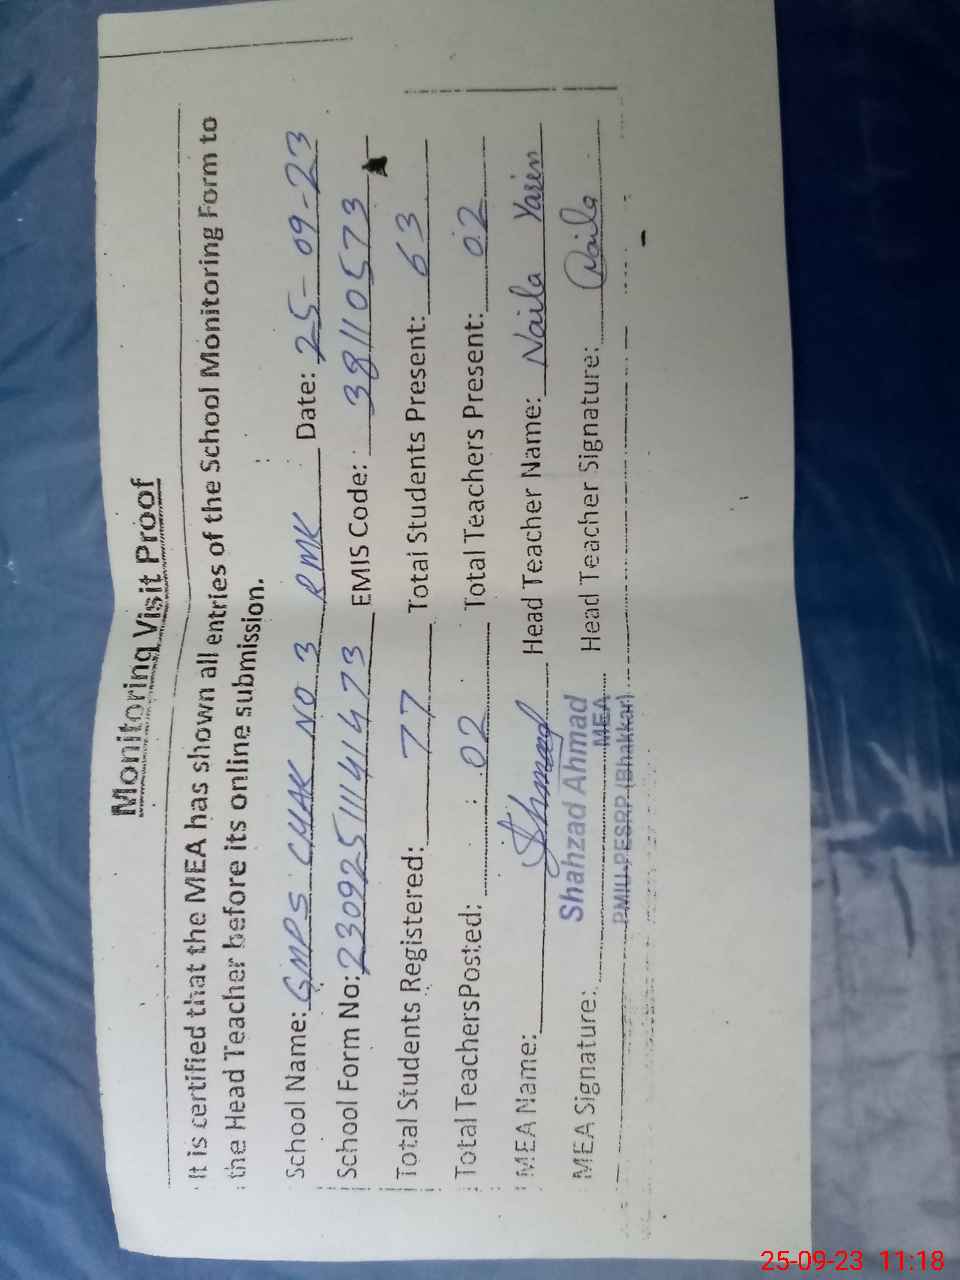 Monitoring Visit Proof
It is certified that the MEA has shown all entries of the School Monitoring Form to
the Head Teacher before its online submission.
School Name: GMPS CHAK NO 3 RMK Date: 25-09-23
School Form No: 23092511141473 EMIS Code: 38110573
Total Students Registered: 77 Total Students Present: 63
Total Teachers Posted: 02 Total Teachers Present: 02
MEA Name: Head Teacher Name: Naila Yasin
Shahzad Ahmad
MEA Signature: Head Teacher Signature: Naila
MEA
PMIU-PESRP (Bhakkar)
25-09-23 11:18